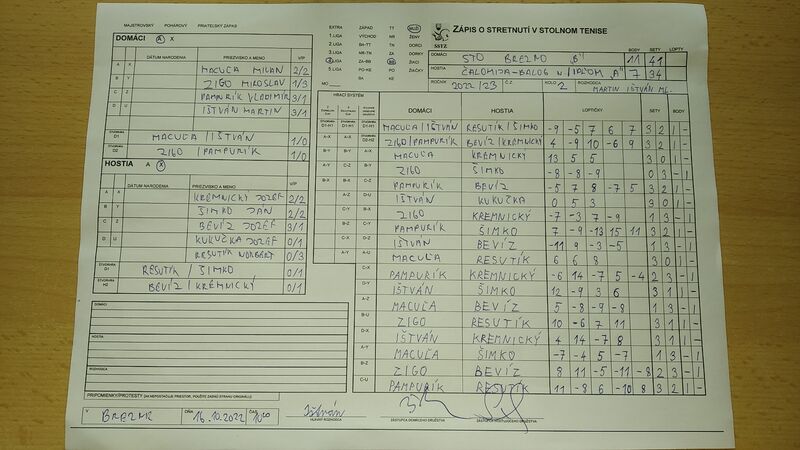 MAJSTROVSKÝ POHÁROVÝ PRIATEĽSKÝ ZÁPAS
DOMÁCI A X
DÁTUM NARODENIA PRIEZVISKO A MENO V/P
A X MACUĽA MILAN 2/2
B Y ZIGO MIROSLAV 1/3
C Z PAMPURÍK VLADIMÍR 3/1
D U IŠTVÁN MARTIN 3/1
ŠTVORHRA D1 MACUĽA / IŠTVÁN 1/0
ŠTVORHRA D2 ZIGO / PAMPURÍK 1/0
HOSTIA A X
DÁTUM NARODENIA PRIEZVISKO A MENO V/P
KREMNICKÝ JOZEF 2/2
ŠIMKO JÁN 2/2
BEVÍZ JOZEF 3/1
KUKUČKA JOZEF 0/1
RESUTÍK NORBERT 0/3
ŠTVORHRA RESUTÍK / ŠIMKO 0/1
ŠTVORHRA H2 BEVÍZ / KREMNICKÝ 0/1
DOMÁCI
HOSTIA
ROZHODCA
PRIPOMIENKY/PROTESTY
V BREZNE DŇA 16.10.2022 ČAS 10:00
EXTRA ZÁPAD TT MUŽI
1.LIGA VÝCHOD NR ŽENY
2.LIGA BA-TT TN DORCI
3.LIGA NR-TN ZA DORKY
4.LIGA ZA-BB BB ŽIACI
5.LIGA PO-KE PO ŽIAČKY
MO KE
SSTZ
ZÁPIS O STRETNUTÍ V STOLNOM TENISE
BODY SETY LOPTY
DOMÁCI STO BREZNO "B" 11 41
HOSTIA ČALOMIJA-BALOG N/IPĽOM "A" 7 34
ROČNÍK 2022/23 Č.Z. KOLO 2 ROZHODCA MARTIN IŠTVÁN ML.
HRACÍ SYSTÉM
DOMÁCI HOSTIA LOPTIČKY SETY BODY
MACUĽA / IŠTVÁN RESUTÍK / ŠIMKO -9 -5 7 6 7 3 2 1 -
ZIGO / PAMPURÍK BEVÍZ / KREMNICKÝ 4 -9 10 -6 9 3 2 1 -
MACUĽA KREMNICKÝ 13 5 5 3 0 1 -
ZIGO ŠIMKO -8 -8 -9 0 3 - 1
PAMPURÍK BEVÍZ -5 7 8 -7 5 3 2 1 -
IŠTVÁN KUKUČKA 0 5 3 3 0 1 -
ZIGO KREMNICKÝ -7 -3 7 -9 1 3 - 1
PAMPURÍK ŠIMKO 7 -9 -13 15 11 3 2 1 -
IŠTVÁN BEVÍZ -11 9 -3 -5 1 3 - 1
MACUĽA RESUTÍK 6 6 8 3 0 1 -
PAMPURÍK KREMNICKÝ -6 14 -7 5 -4 2 3 - 1
IŠTVÁN ŠIMKO 12 -9 3 6 3 1 1 -
MACUĽA BEVÍZ 5 -8 -9 -8 1 3 - 1
ZIGO RESUTÍK 10 -6 7 11 3 1 1 -
IŠTVÁN KREMNICKÝ 4 14 -7 8 3 1 1 -
MACUĽA ŠIMKO -7 -4 5 -7 1 3 - 1
ZIGO BEVÍZ 8 11 -5 -11 -8 2 3 - 1
PAMPURÍK RESUTÍK 11 -8 6 -10 8 3 2 1 -
Ištván
HLAVNÝ ROZHODCA
ZÁSTUPCA DOMÁCEHO DRUŽSTVA
ZÁSTUPCA HOSŤUJÚCEHO DRUŽSTVA